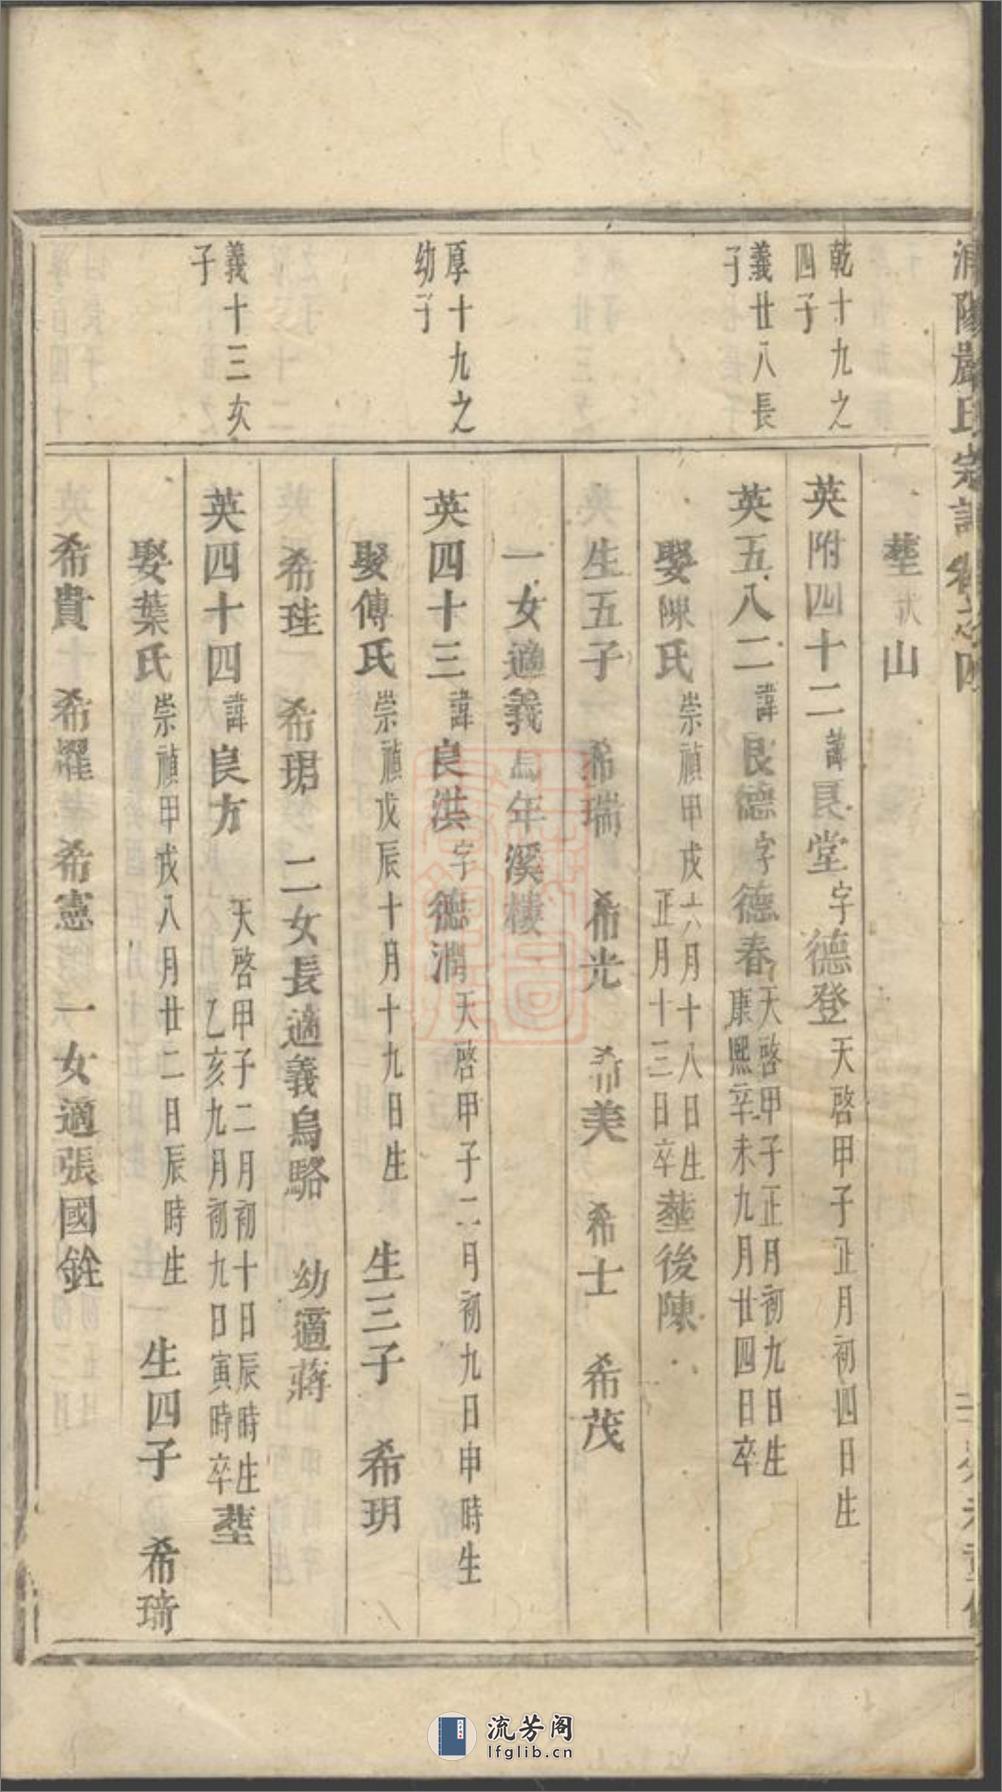 浦陽嚴氏宗譜 卷之四
塟 山
乾十九之四子
英附四十二 諱良堂 字德登 天啓甲子正月初四日生
義廿八長子
英五八二 諱良德 字德春 天啓甲子正月初九日生 康熙辛未九月廿四日卒
娶陳氏 崇禎甲戌六月十八日生 正月十三日卒 塟後陳
生五子 希瑞 希光 希美 希士 希茂
一女適義烏年溪樓
厚十九之幼子
英四十三 諱良洪 字德潤 天啓甲子二月初九日申時生
娶傅氏 崇禎戊辰十月十九日生 生三子 希玥
希珪 希珺 二女長適義烏駱 幼適蔣
義十三次子
英四十四 諱良方 天啓甲子二月初十日辰時生 乙亥九月初九日寅時卒 塟
娶葉氏 崇禎甲戌八月廿二日辰時生 生四子 希琦
希貴 希耀 希憲 一女適張國銓
流芳阁
lfglib.cn